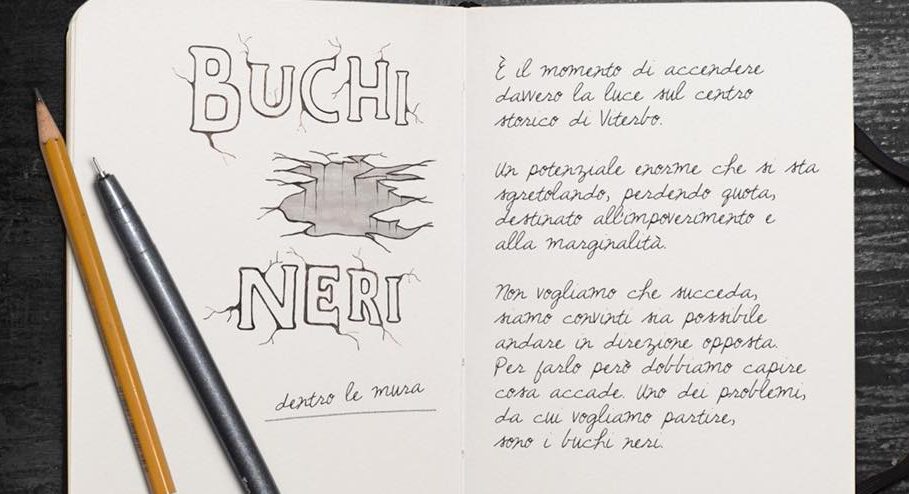 BUCHI
NERI
dentro le mura
È il momento di accendere
davvero la luce sul centro
storico di Viterbo.
Un potenziale enorme che si sta
sgretolando, perdendo quota,
destinato all'impoverimento e
alla marginalità.
Non vogliamo che succeda,
siamo convinti sia possibile
andare in direzione opposta.
Per farlo però dobbiamo capire
cosa accade. Uno dei problemi,
da cui vogliamo partire,
sono i buchi neri.